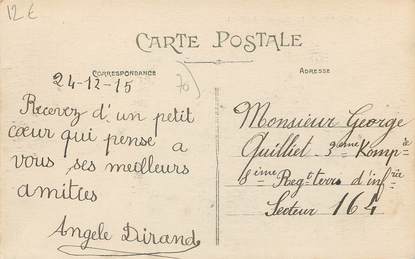 12€
CARTE POSTALE
CORRESPONDANCE
70
ADRESSE
24-12-15
Recevez d'un petit
cœur qui pense a
vous ses meilleurs
amitées
Angele Dirand
Monsieur George
Quilliet 3eme Kompie
8ième Regt terre d'infrie
Secteur 164